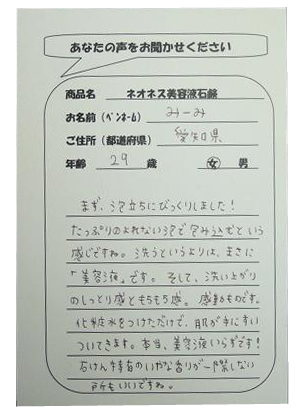 あなたの声をお聞かせください
商品名 ネオネス美容液石鹸
お名前(ペンネーム) みーみ
ご住所(都道府県) 愛知県
年齢 29 歳 女 男
まず、泡立ちにびっくりしました!
たっぷりのよれない泡で包み込むという
感じですね。洗うというよりは、まさに
「美容液」です。そして、洗い上がり
のしっとり感ともちもち感。感動ものです。
化粧水をつけただけで、肌が手にすい
ついてきます。本当、美容液いらずです!
石けん特有のいやな香りが一際しない
所もいいですね。